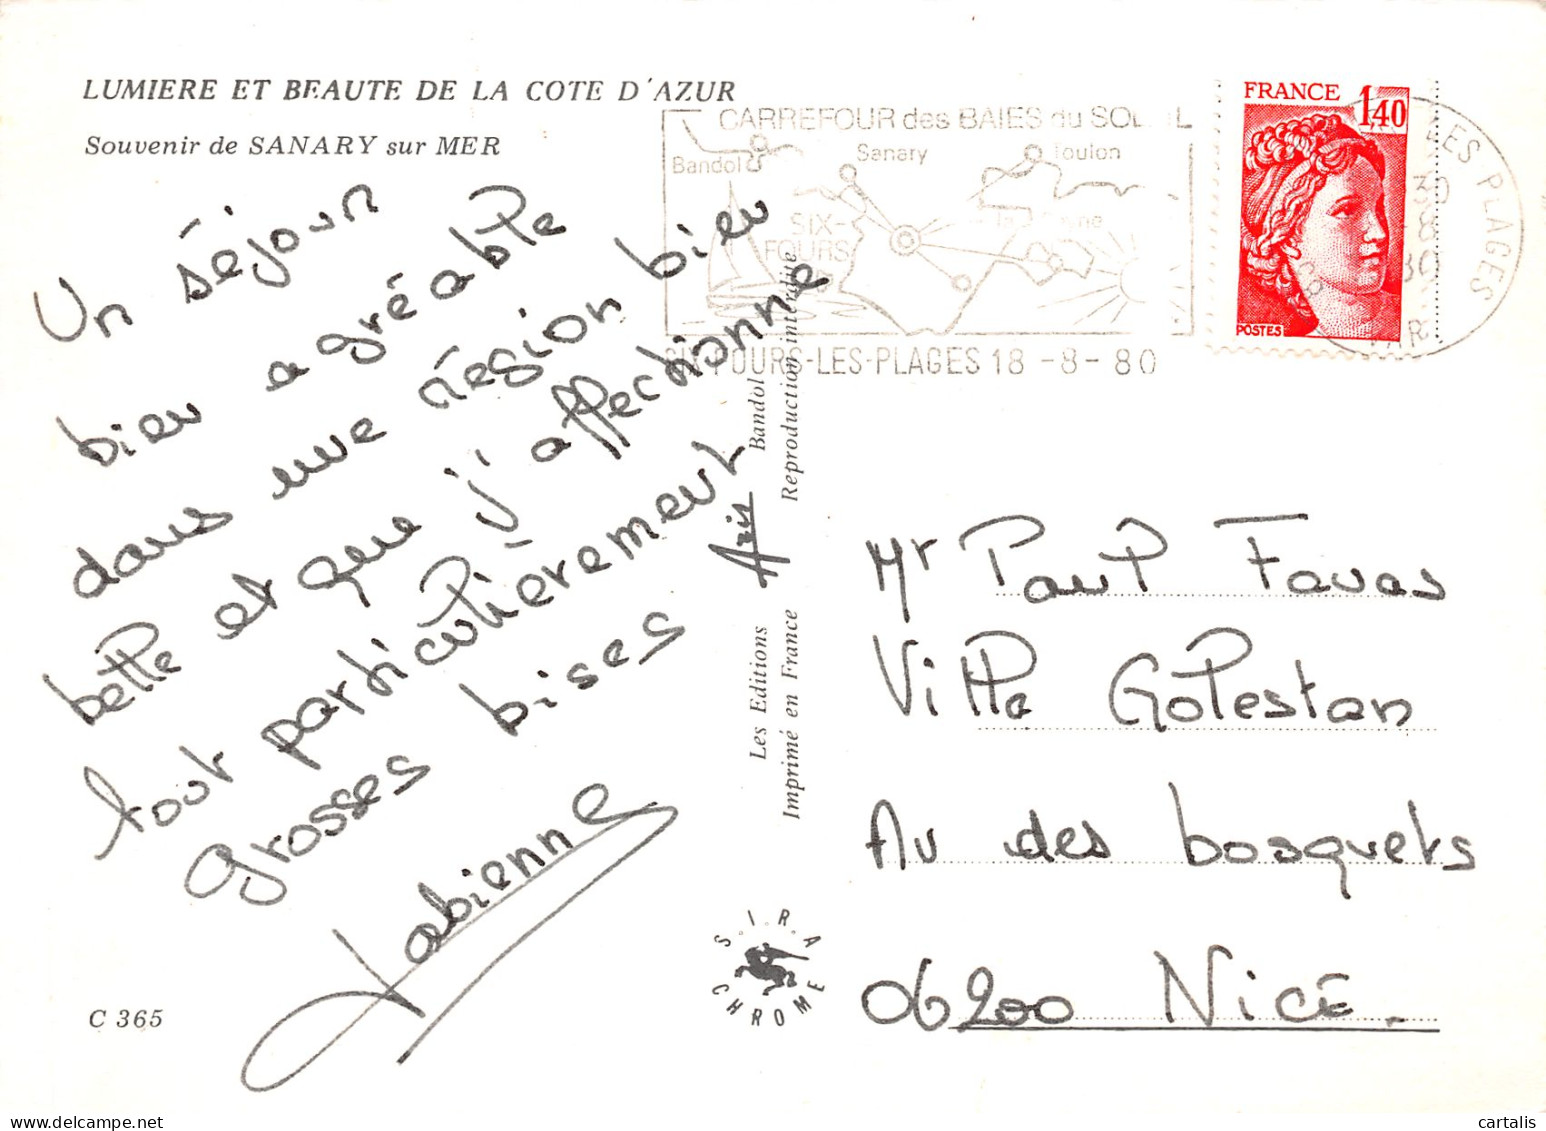 LUMIERE ET BEAUTE DE LA COTE D'AZUR
Souvenir de SANARY sur MER
Un séjour
bien agréable
dans une région bien
belle et que j'affectionne
tout particulièrement
grosses bises
Fabienne
C 365
CARREFOUR des BAIES du SOLEIL
Bandol
Sanary
Toulon
SIX-
FOURS
la Seyne
SIX-FOURS-LES-PLAGES 18-8-80
FRANCE
1,40
POSTES
LES PLAGES
VAR
Les Editions Aris Bandol
Imprimé en France
Reproduction interdite
S.I.R.A
CHROME
Mr Paul Favas
Ville Golestan
Av des bosquets
06200 NICE.
cartalis delcampe.net